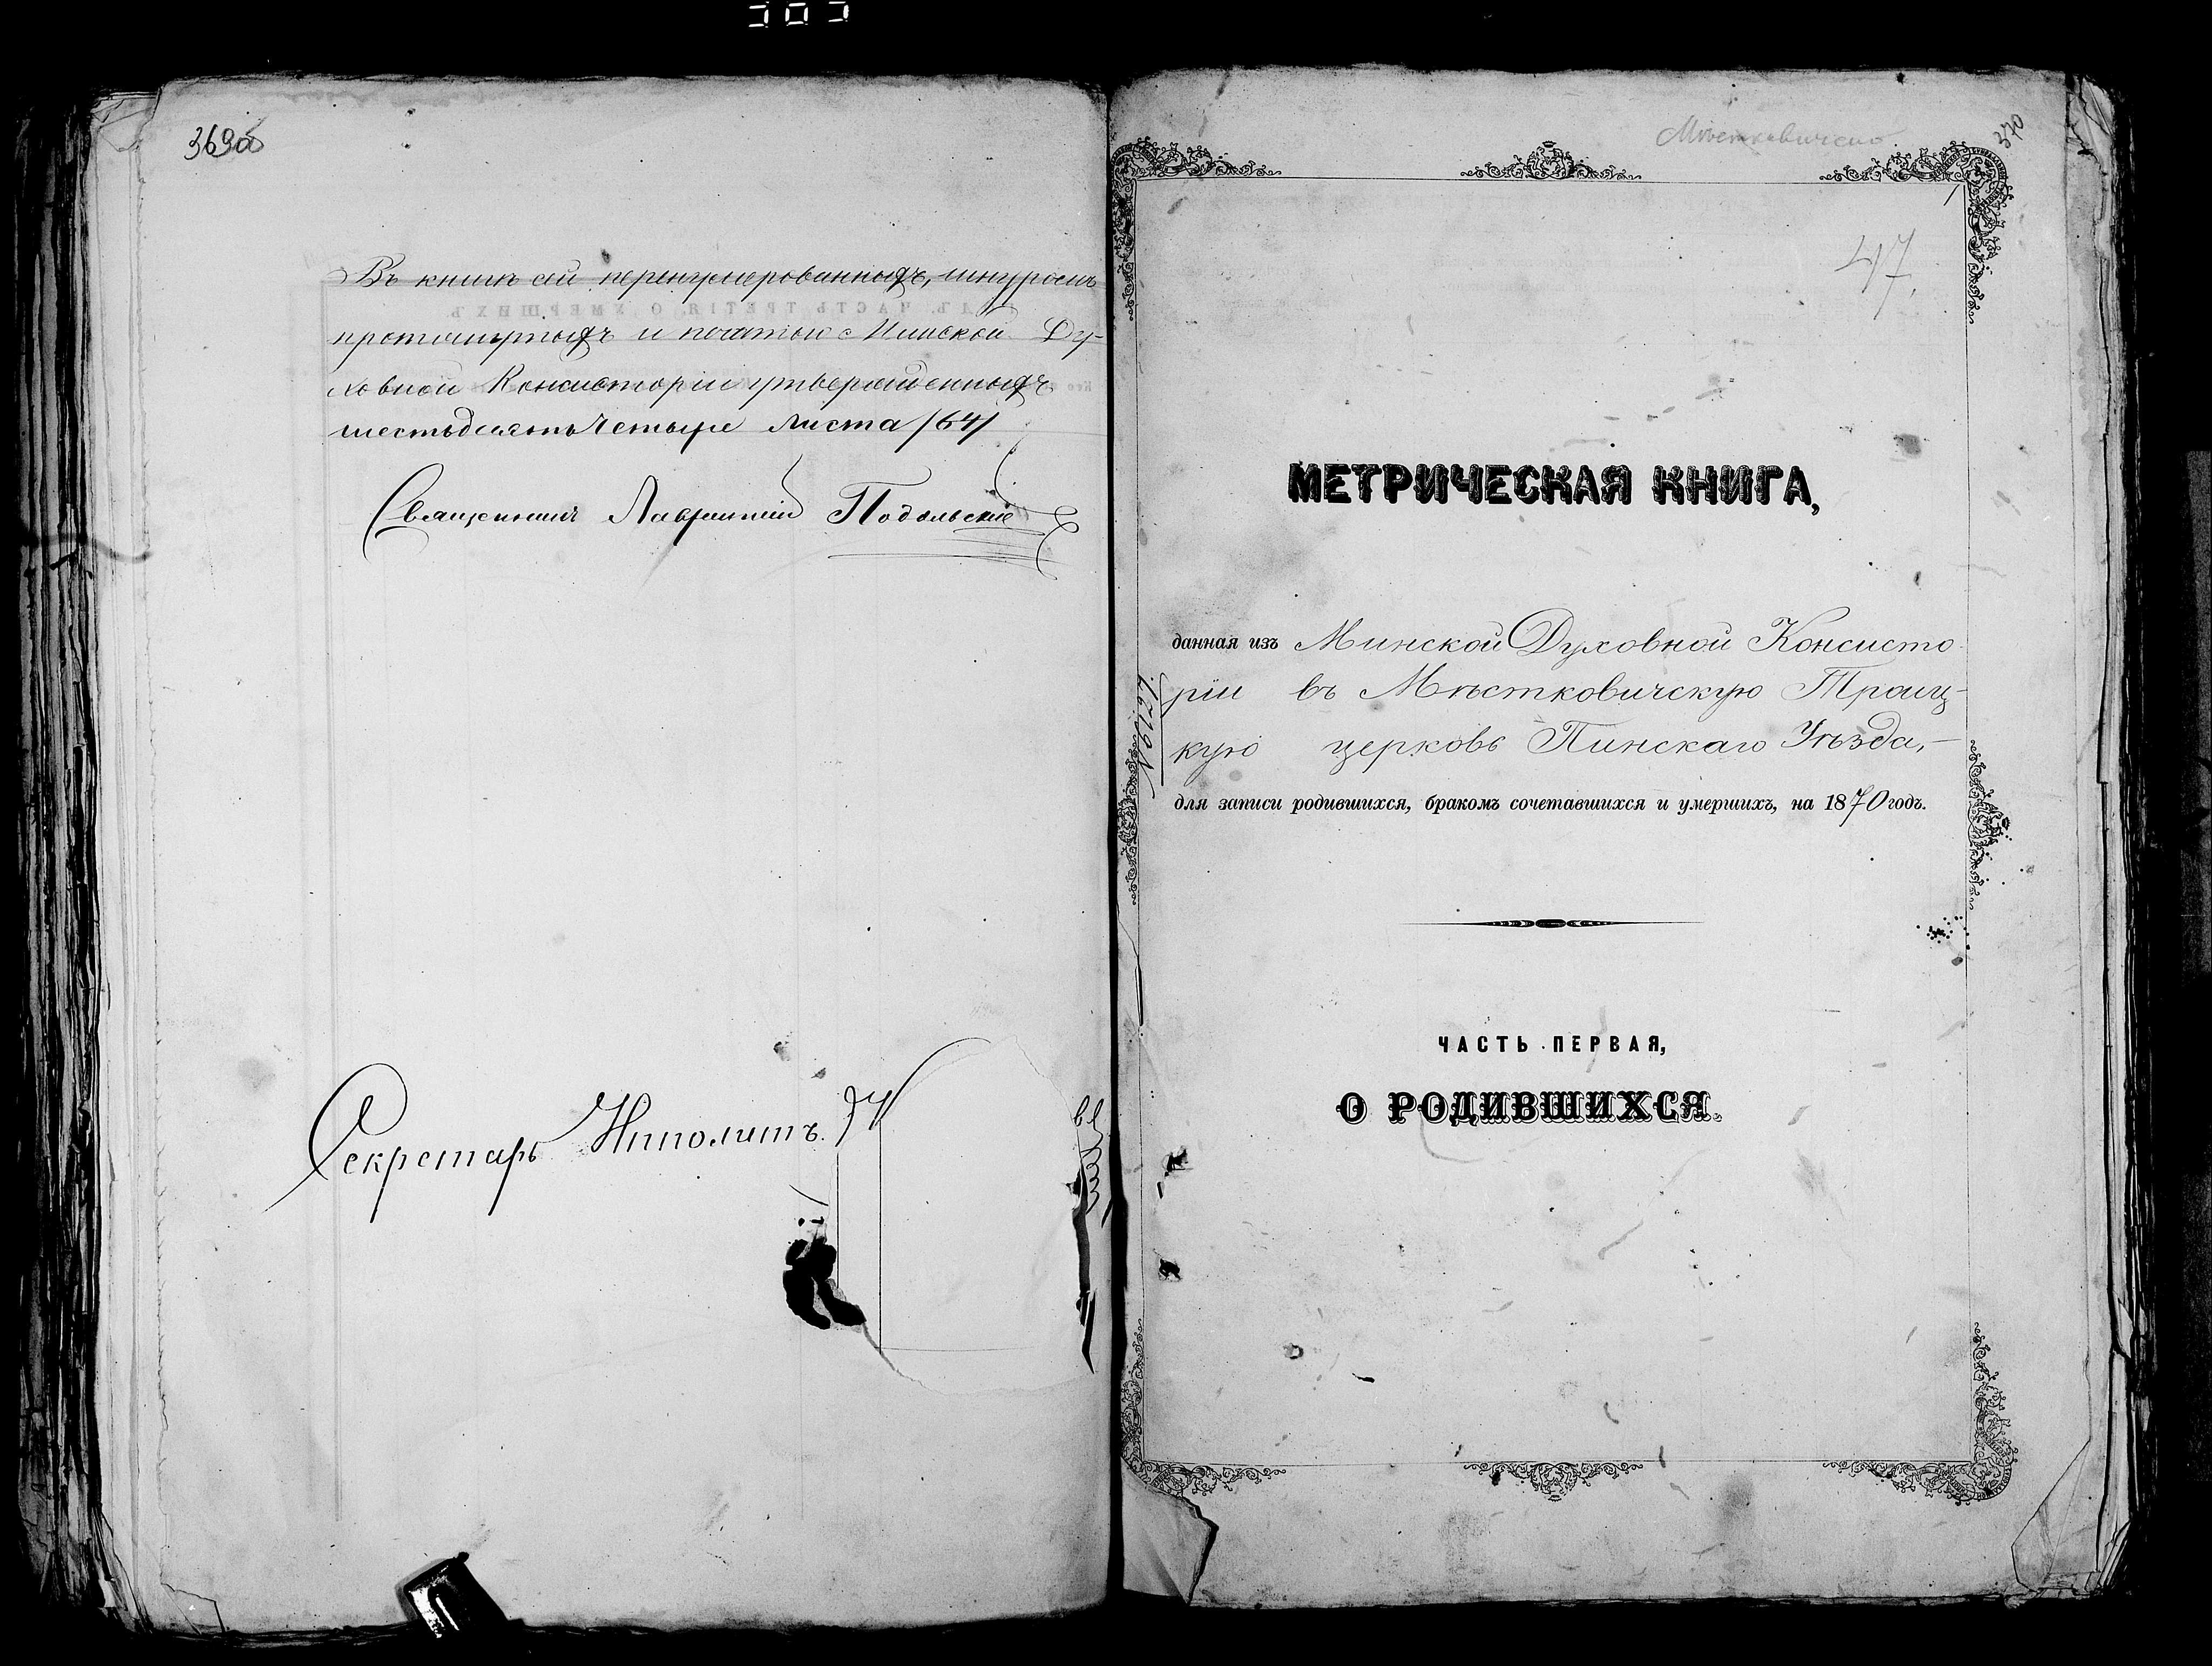 369об
Въ книгѣ сей перенумерованныхъ, шнуромъ
протянутыхъ и печатью Минской Ду-
ховной Консисторіи утвержденныхъ
шестьдесятъ четыре листа /64/
Священникъ Лаврентій Подольскій
Секретарь Иполитъ
370
Мѣстковичско
47.
МЕТРИЧЕСКАЯ КНИГА,
данная изъ Минской Духовной Консисто
ріи въ Мѣстковичскую Троиц-
кую церковь Пинскаго Уѣзда,—
для записи родившихся, бракомъ сочетавшихся и умершихъ, на 1870 годъ.
№6727
ЧАСТЬ ПЕРВАЯ,
О РОДИВШИХСЯ.